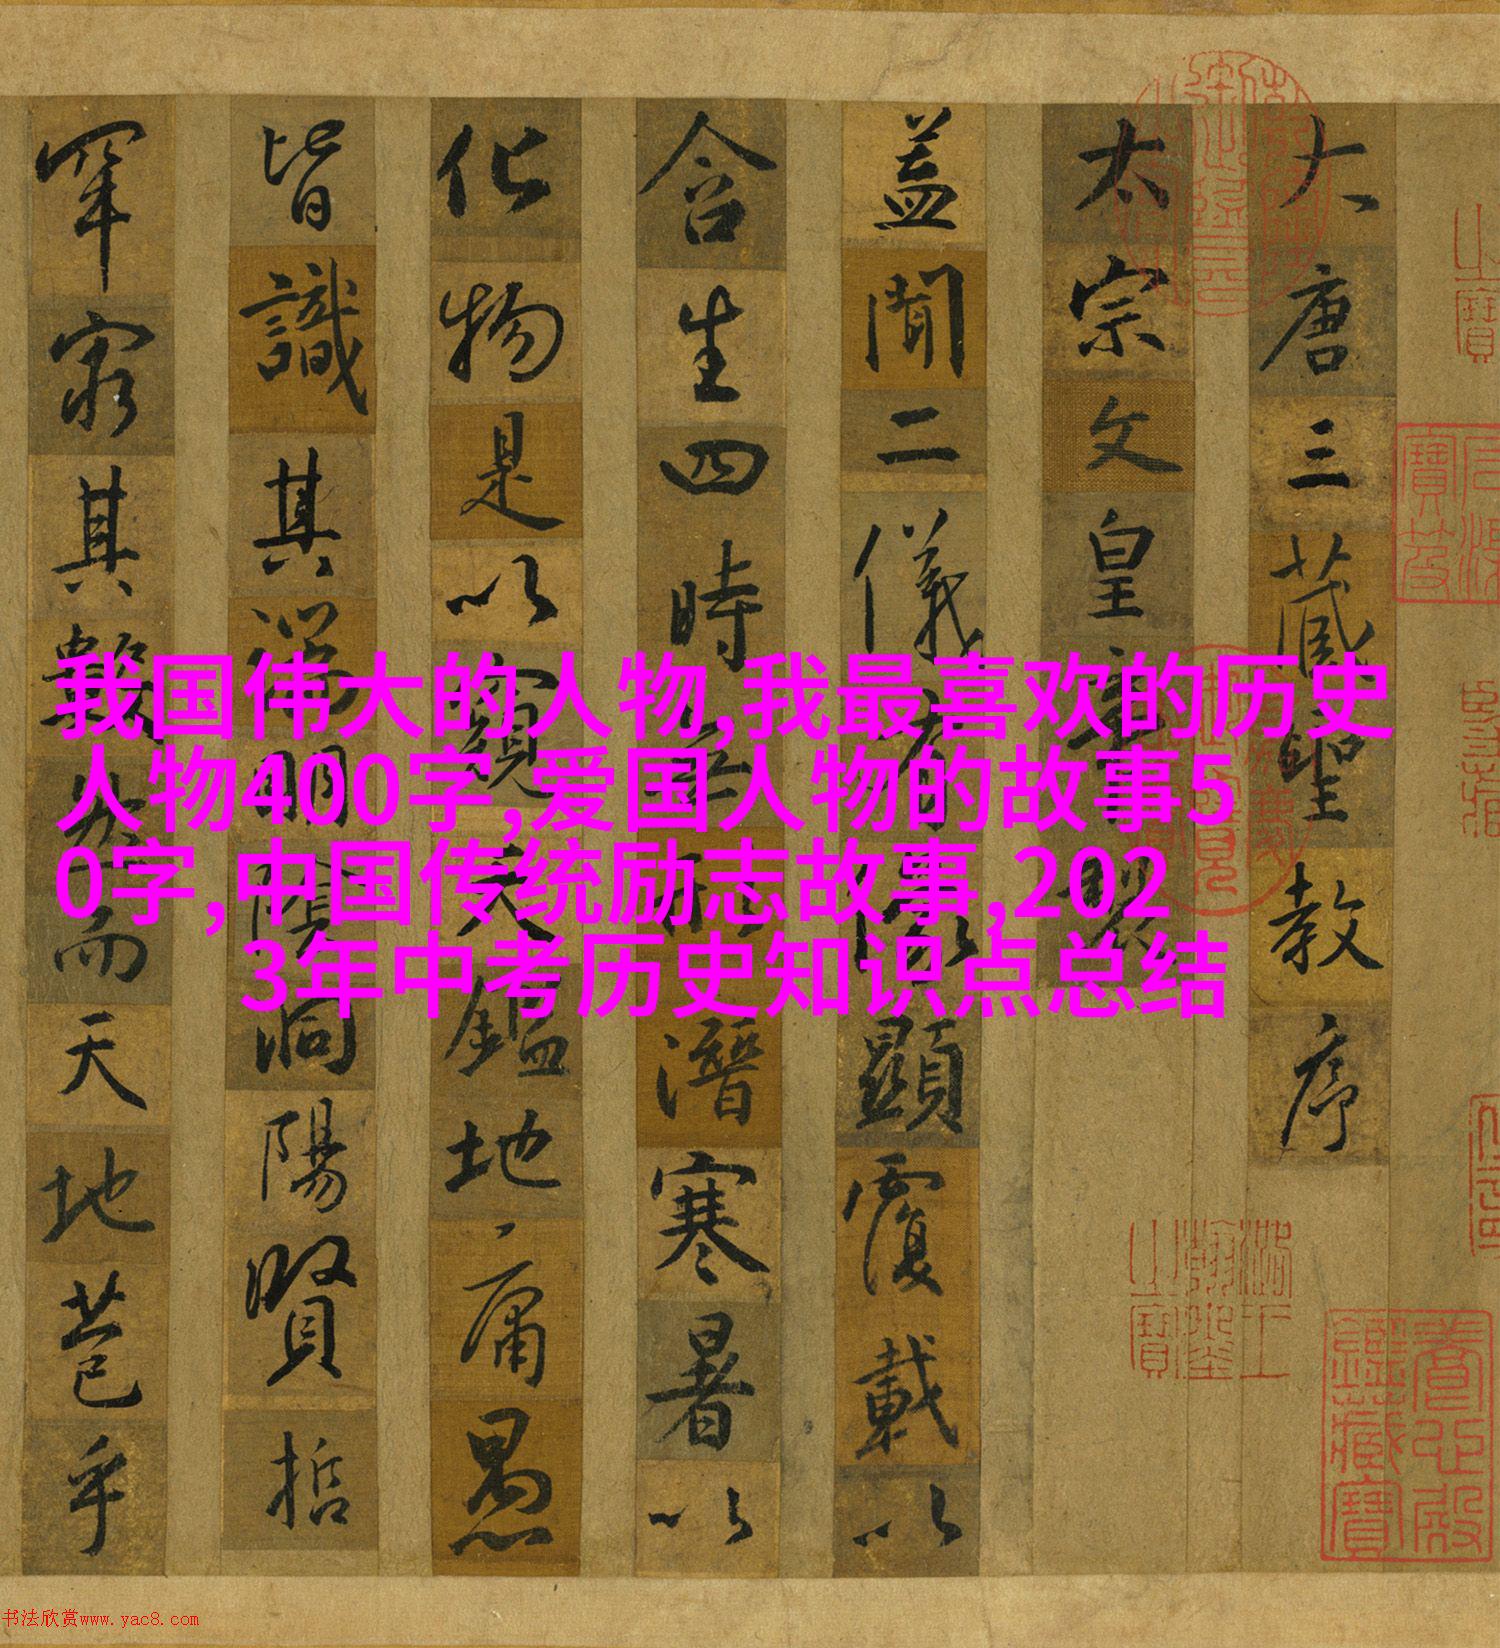 大唐三藏聖教序
太宗文皇帝製
蓋聞二儀有像顯覆載以
含生四時無形潛寒暑以
化物是以窺天鑑地庸愚
皆識其端明陰洞陽賢哲
罕窮其數然而天地苞乎
我国伟大的人物,我最喜欢的历史
人物400字,爱国人物的故事5
0字,中国传统励志故事,202
3年中考历史知识点总结
養心殿鑑藏寶
书法欣赏www.yac8.com